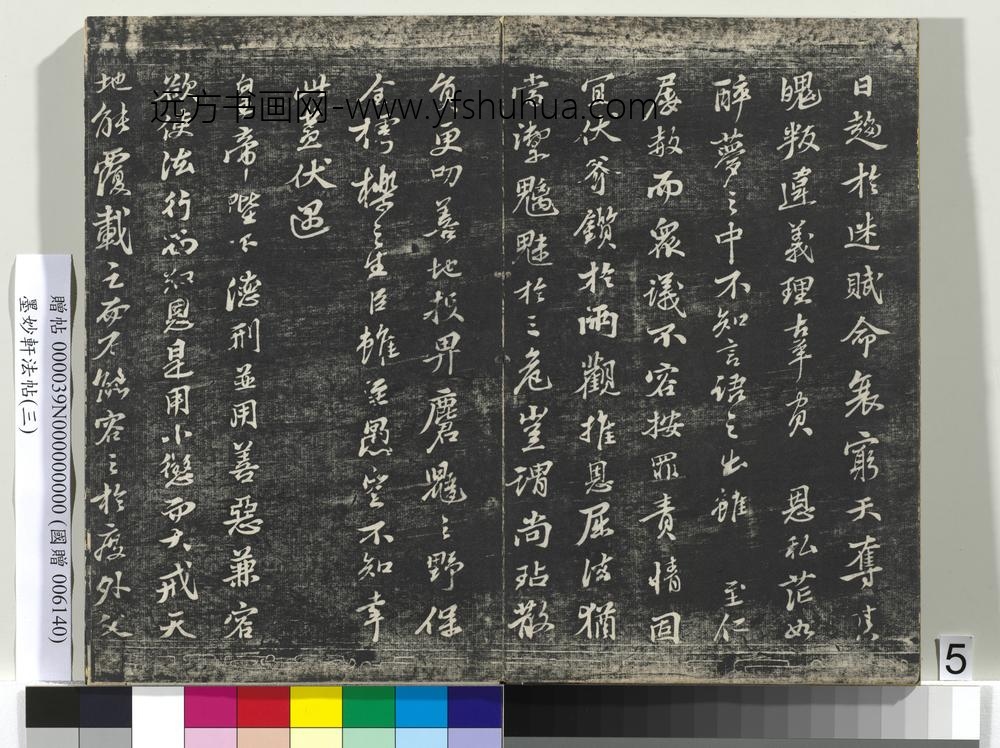 日趨於迷賦命衰窮天奪其
魄叛違義理辜負恩私茫如
醉夢之中不知言語之出雖至仁
屢赦而衆議不容按罪責情固
宜伏斧鑕於兩觀推恩屈法猶
當禦魑魅於三危豈謂尚玷散
員更叨善地投畀麏鼯之野保
全樗櫟之生臣雖至愚豈不知幸
此蓋伏遇
皇帝陛下德刑並用善惡兼容
欲使法行而知恩是用小懲而大戒天
地能覆載之而不能容之於度外父
远方书画网-www.yfshuhua.com
贈帖 000039N000000000 (國贈 006140)
墨妙軒法帖(三)
5